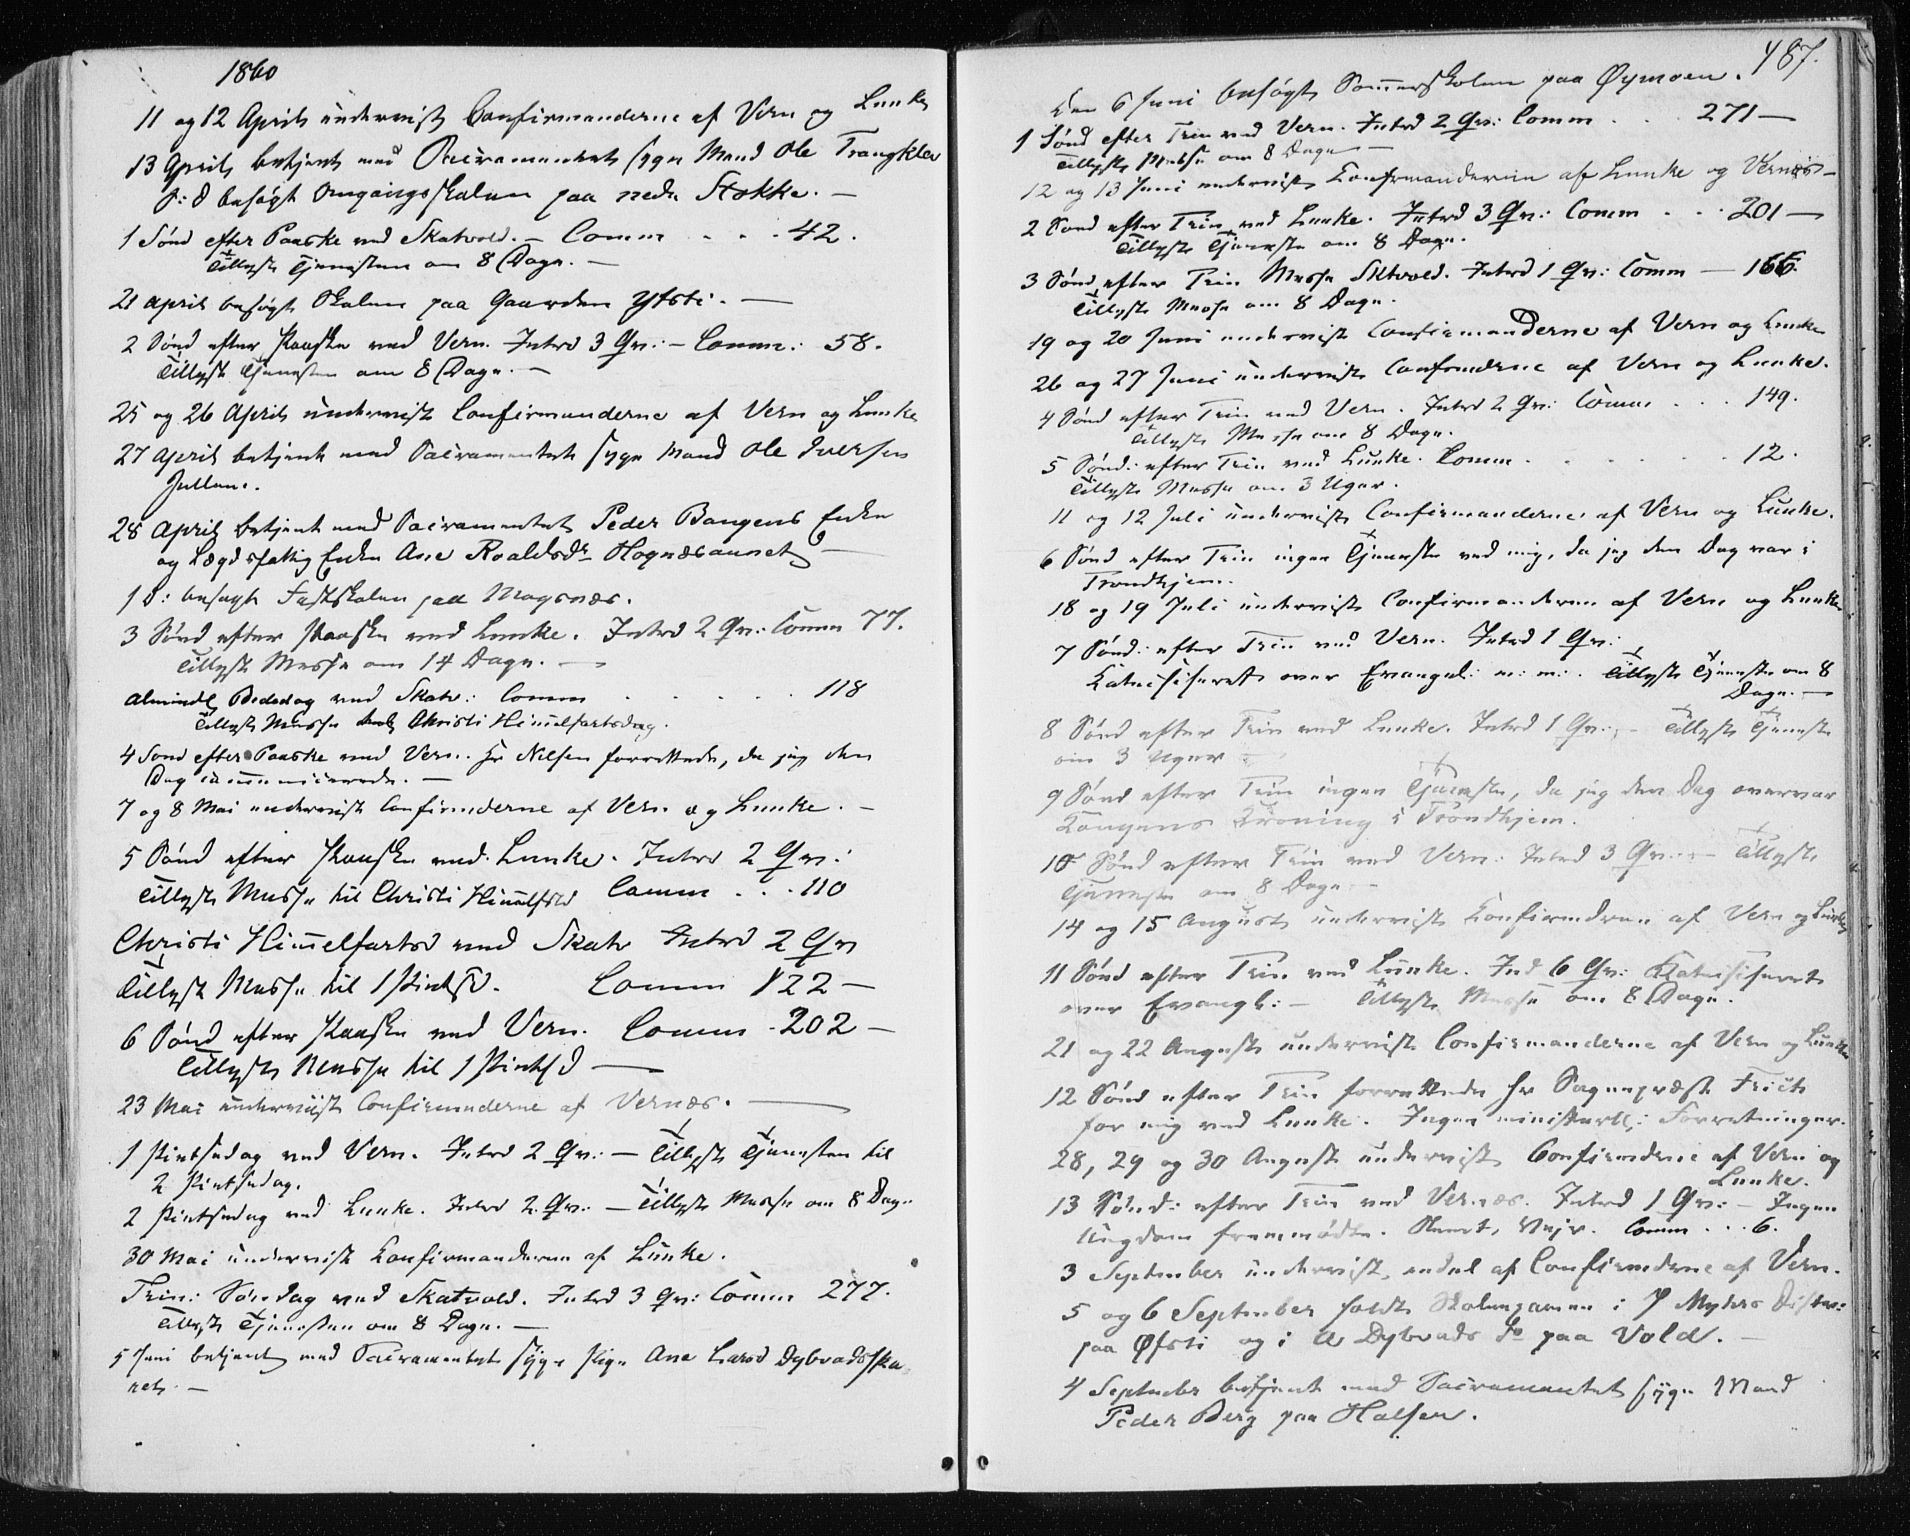 1860
11 og 12 April underviist Confirmanderne af Vern og Lunke
13 April betjent med Sacramentet syge Mand Ole Trangklev
S: D besøgt Omgangsskolen paa nedr. Stokke. —
1 Sønd efter Paaske ved Skatvold. — Comm . . . 42.
Tillyst Tjenesten om 8 Dage. —
21 April besøgt Skolen paa Gaarden Yfsti. —
2 Sønd efter Paaske ved Vern. Intrd 3 Qv: — Comm: 58.
Tillyst Tjenesten om 8 Dage. —
25 og 26 April underviist Confirmanderne af Vern og Lunke
27 April betjent med Sacramentet syge Mand Ole Iversen
Jullum.
28 April betjent med Sacramentet Peder Bangens Enke
og Lægdsfattig Enke Ane Roaldsdr Hognæsaunet —
S D: besøgt Fastskolen paa Mogsnæs.
3 Sønd efter Paaske ved Lunke. Intrd 2 Qv: Comm 77.
Tillyst Messe om 14 Dage. —
Almindl Bededag ved Skatv: Comm . . . . . 118
Tillyst Messe Christi Himmelfartsdag.
4 Sønd efter Paaske ved Vern. Hr Nilsen forrettede, da jeg den
Dag communicerede. —
7 og 8 Mai underviist Confirmderne af Vern og Lunke. —
5 Sønd efter Paaske ved Lunke. Intrd 2 Qv:
Tillyst Messe til Christi Himmelfrtsd Comm . . . 110
Christi Himmelfartsd ved Skatv Intrd 2 Qv
Tillyst Messe til 1 Pintsd. Comm 122 —
6 Sønd efter Paaske ved Vern. Comm . 202 —
Tillyst Messe til 1 Pintsd —
23 Mai underviist Confirmanderne af Vernæs. —
1 Pintsedag ved Vern. Intrd 2 Qv: — Tillyst Tjenesten til
2 Pintsedag.
2 Pintsedag ved Lunke. Intrd 2 Qv: — Tillyst Messe om 8 Dage
30 Mai underviist Konfirmanderne af Lunke.
Trin: Søndag ved Skatvold. Intrd 3 Qv: Comm 277.
Tillyst Tjenesten om 8 Dage. —
5 Juni betjent med Sacramentet syge Pige Ane Larsd Dybvadsspa-
net. —
487.
Den 6 Juni besøgt Sommerskolen paa Øymoen.
1 Sønd efter Trin ved Vern. Intrd 2 Qv: Comm . . . 271 —
Tillyst Messe om 8 Dage —
12 og 13 Juni underviist Konfirmanderne af Lunke og Vernæs —
2 Sønd efter Trin ved Lunke. Intrd 3 Qv: Comm . . . 201 —
Tillyst Tjeneste om 8 Dage.
3 Sønd efter Trin Messe Sktvold. Intrd 1 Qv: Comm — 166.
Tillyst Messe om 8 Dage.
19 og 20 Juni underviist Confirmanderne af Vern og Lunke
26 og 27 Juni underviist Confrmderne af Vern og Lunke.
4 Sønd efter Trin ved Vern. Intrd 2 Qv: Comm . . . 149.
Tillyst Messe om 8 Dage.
5 Sønd: efter Trin ved Lunke. Comm . . . . . . 12.
Tillyst Messe om 3 Uger.
11 og 12 Juli underviist Confirmanderne af Vern og Lunke.
6 Sønd efter Trin ingen Tjeneste ved mig, da jeg den Dag var i
Trondhjem.
18 og 19 Juli underviist Confirmanderne af Vern og Lunke
7 Sønd: efter Trin ved Vern. Intrd 1 Qv:
Katechiseret over Evangel: m: m: . Tillyst Tjeneste om 8
Dage. —
8 Sønd efter Trin ved Lunke. Intrd 1 Qv: — Tillyst Tjeneste
om 3 Uger
9 Sønd efter Trin ingen Tjeneste, da jeg den Dag overvar
Kongens Kroning i Trondhjem.
10 Sønd efter Trin ved Vern: Intrd 3 Qv: — Tillyst
Tjenesten om 8 Dage. —
14 og 15 August underviist Konfirmdrne af Vern og Lunke
11 Sønd efter Trin ved Lunke. Ind 6 Qv: Katechiseret
over Evangl: — Tillyst Messe om 8 Dage.
21 og 22 August underviist Confirmanderne af Vern og Lunke
12 Sønd efter Trin forrettede Hr Sognepræst Trich
for mig ved Lunke. Ingen ministerll: Forretninger.
28, 29 og 30 August underviist Confirmdrne af Vern og
Lunke.
13 Sønd: efter Trin ved Vernæs. Intrd 1 Qv: — Ingen
Ungdom fremmødte. Slemt Vejr. Comm . . . 6.
3 September underviist endel af Confirmderne af Vern.
5 og 6 September holdt Skoleexamen i P Myhrs Distr:
paa Øfsti og i A Dybvads Do paa Vold. —
4 September betjent med Sacramentet syge Mand
Peder Berg paa Halsen.